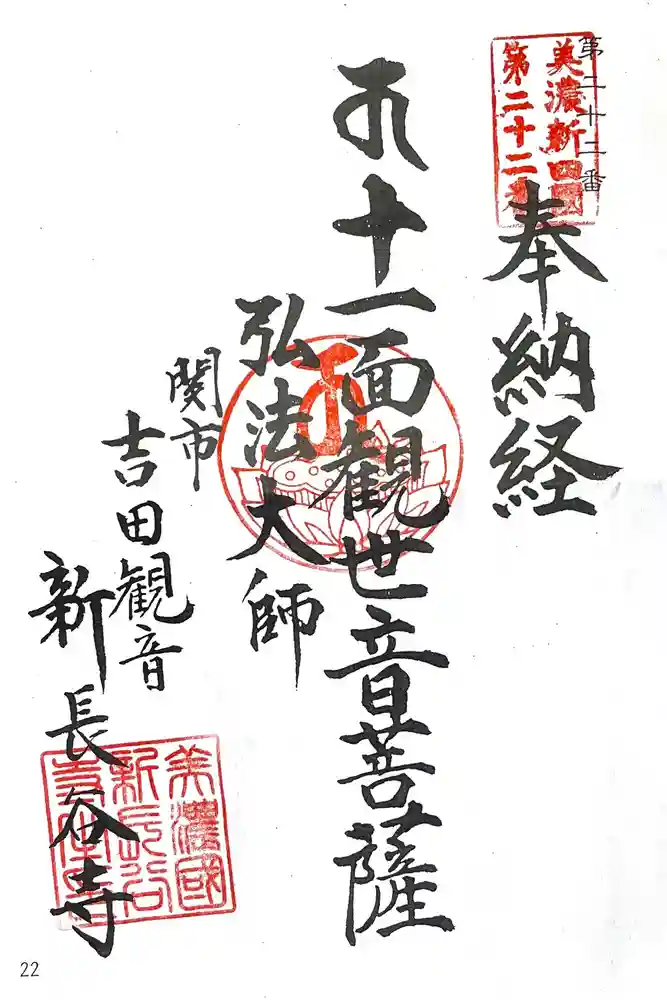 第二十二番
美濃新四國
第二十二番
奉納経
十一面観世音菩薩
弘法大師
関市
吉田観音
新長谷寺
美濃國
新長谷
22